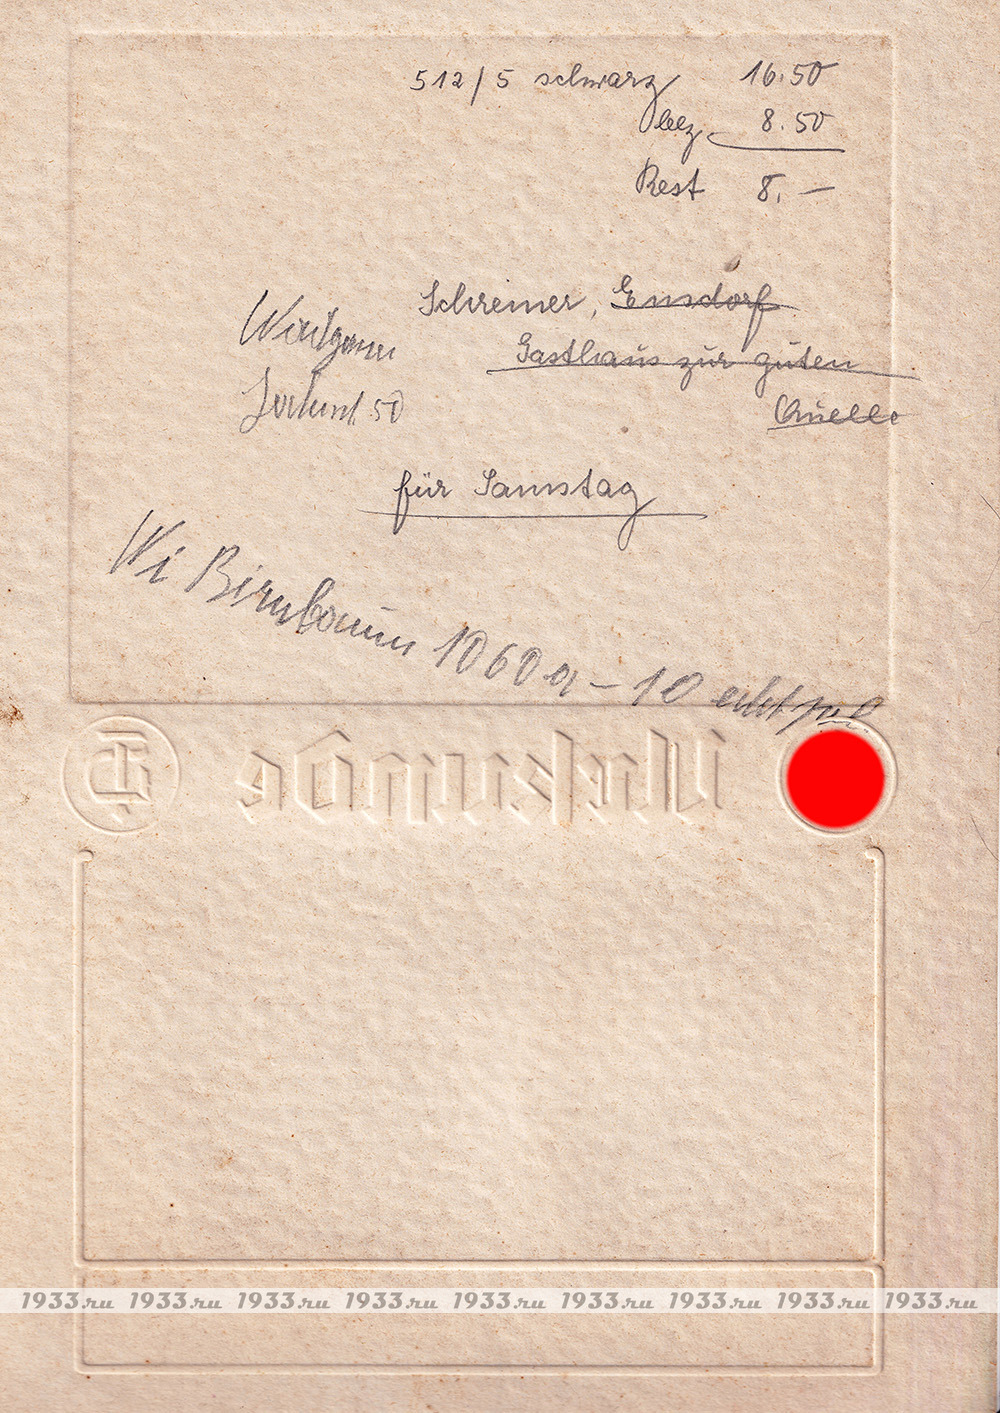 512/5 schwarz 16.50
bez 8.50
Rest 8.—
Schreiner, Ensdorf
Gasthaus zur guten
Quelle
50
für Samstag
Wi Birnbaum 1060 a – 10 echt
Urkunde
1933.ru 1933.ru 1933.ru 1933.ru 1933.ru 1933.ru 1933.ru 1933.ru 1933.ru